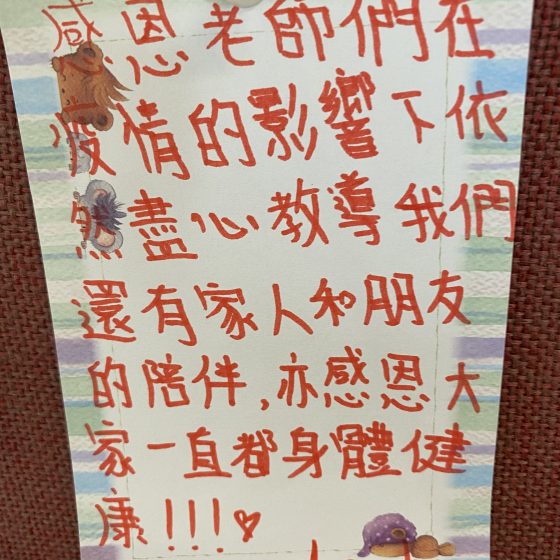 感恩老師們在
疫情的影響下依
然盡心教導我們
還有家人和朋友
的陪伴,亦感恩大
家一直都身體健
康!!!♡